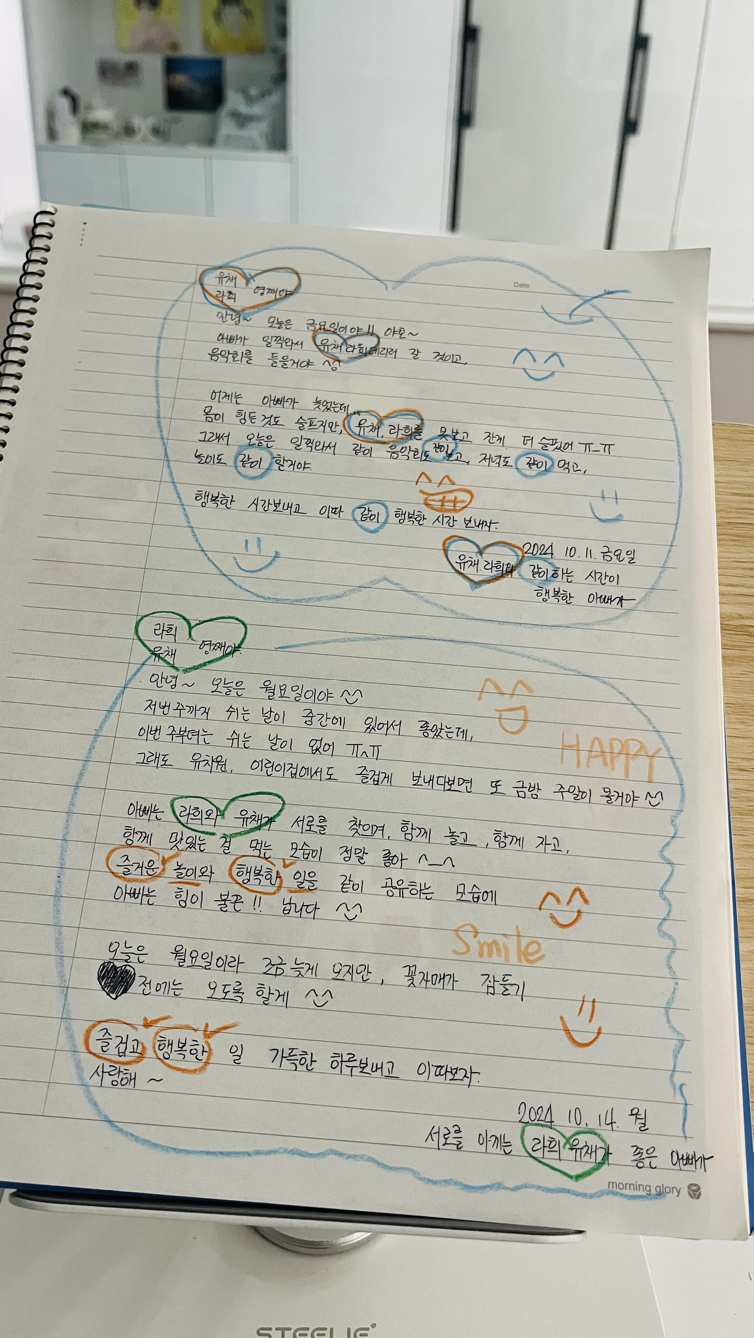 Date
유채
라희 영째야
안녕~ 오늘은 금요일이야!! 야호~
아빠가 일찍와서 유채라희데리러 갈 것이고,
음악회를 들을거야 ^^
어제는 아빠가 늦었는데,
몸이 힘든것도 슬프지만, 유채, 라희를 못보고 잔게 더 슬펐어 ㅠ_ㅠ
그래서 오늘은 일찍와서 같이 음악회도 보고, 저녁도 같이 먹고,
놀이도 같이 할거야.
행복한 시간보내고 이따 같이 행복한 시간 보내자.
2024 10. 11. 금요일
유채 라희와 같이하는 시간이
행복한 아빠가
라희
유채 영째야.
안녕~ 오늘은 월요일이야 ^^
저번주까지 쉬는 날이 중간에 있어서 좋았는데,
이번주부터는 쉬는 날이 없어 ㅠㅅㅠ
그래도 유치원, 어린이집에서도 즐겁게 보내다보면 또 금방 주말이 올거야 ^^
HAPPY
아빠는 라희와 유채가 서로를 찾으며, 함께 놀고, 함께 자고,
함께 맛있는 걸 먹는 모습이 정말 좋아 ^_^
즐거운 놀이와 행복한 일을 같이 공유하는 모습에
아빠는 힘이 불끈!! 납니다 ^^
Smile
오늘은 월요일이라 조금 늦게 오지만, 꽃자매가 잠들기
전에는 오도록 할게 ^^
즐겁고 행복한 일 가득한 하루보내고 이따보자.
사랑해 ~
2024 10. 14. 월
서로를 아끼는 라희 유채가 좋은 아빠가
morning glory
STEELIE